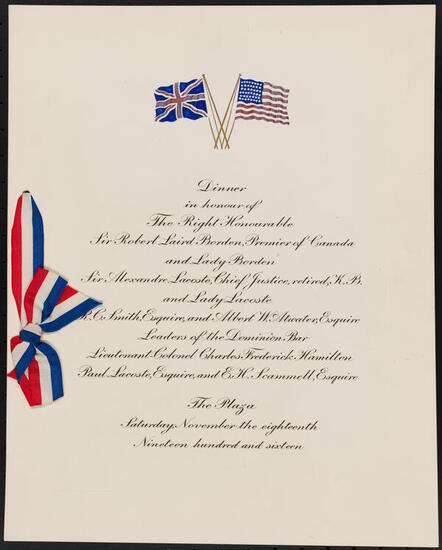 Dinner
in honour of
The Right Honourable
Sir Robert Laird Borden, Premier of Canada
and Lady Borden
Sir Alexandre Lacoste, Chief Justice, retired, K.B.
and Lady Lacoste
R.C. Smith, Esquire, and Albert W. Atwater, Esquire
Leaders of the Dominion Bar
Lieutenant-Colonel Charles Frederick Hamilton
Paul Lacoste, Esquire, and E.H. Scammell, Esquire
The Plaza
Saturday, November the eighteenth
Nineteen hundred and sixteen